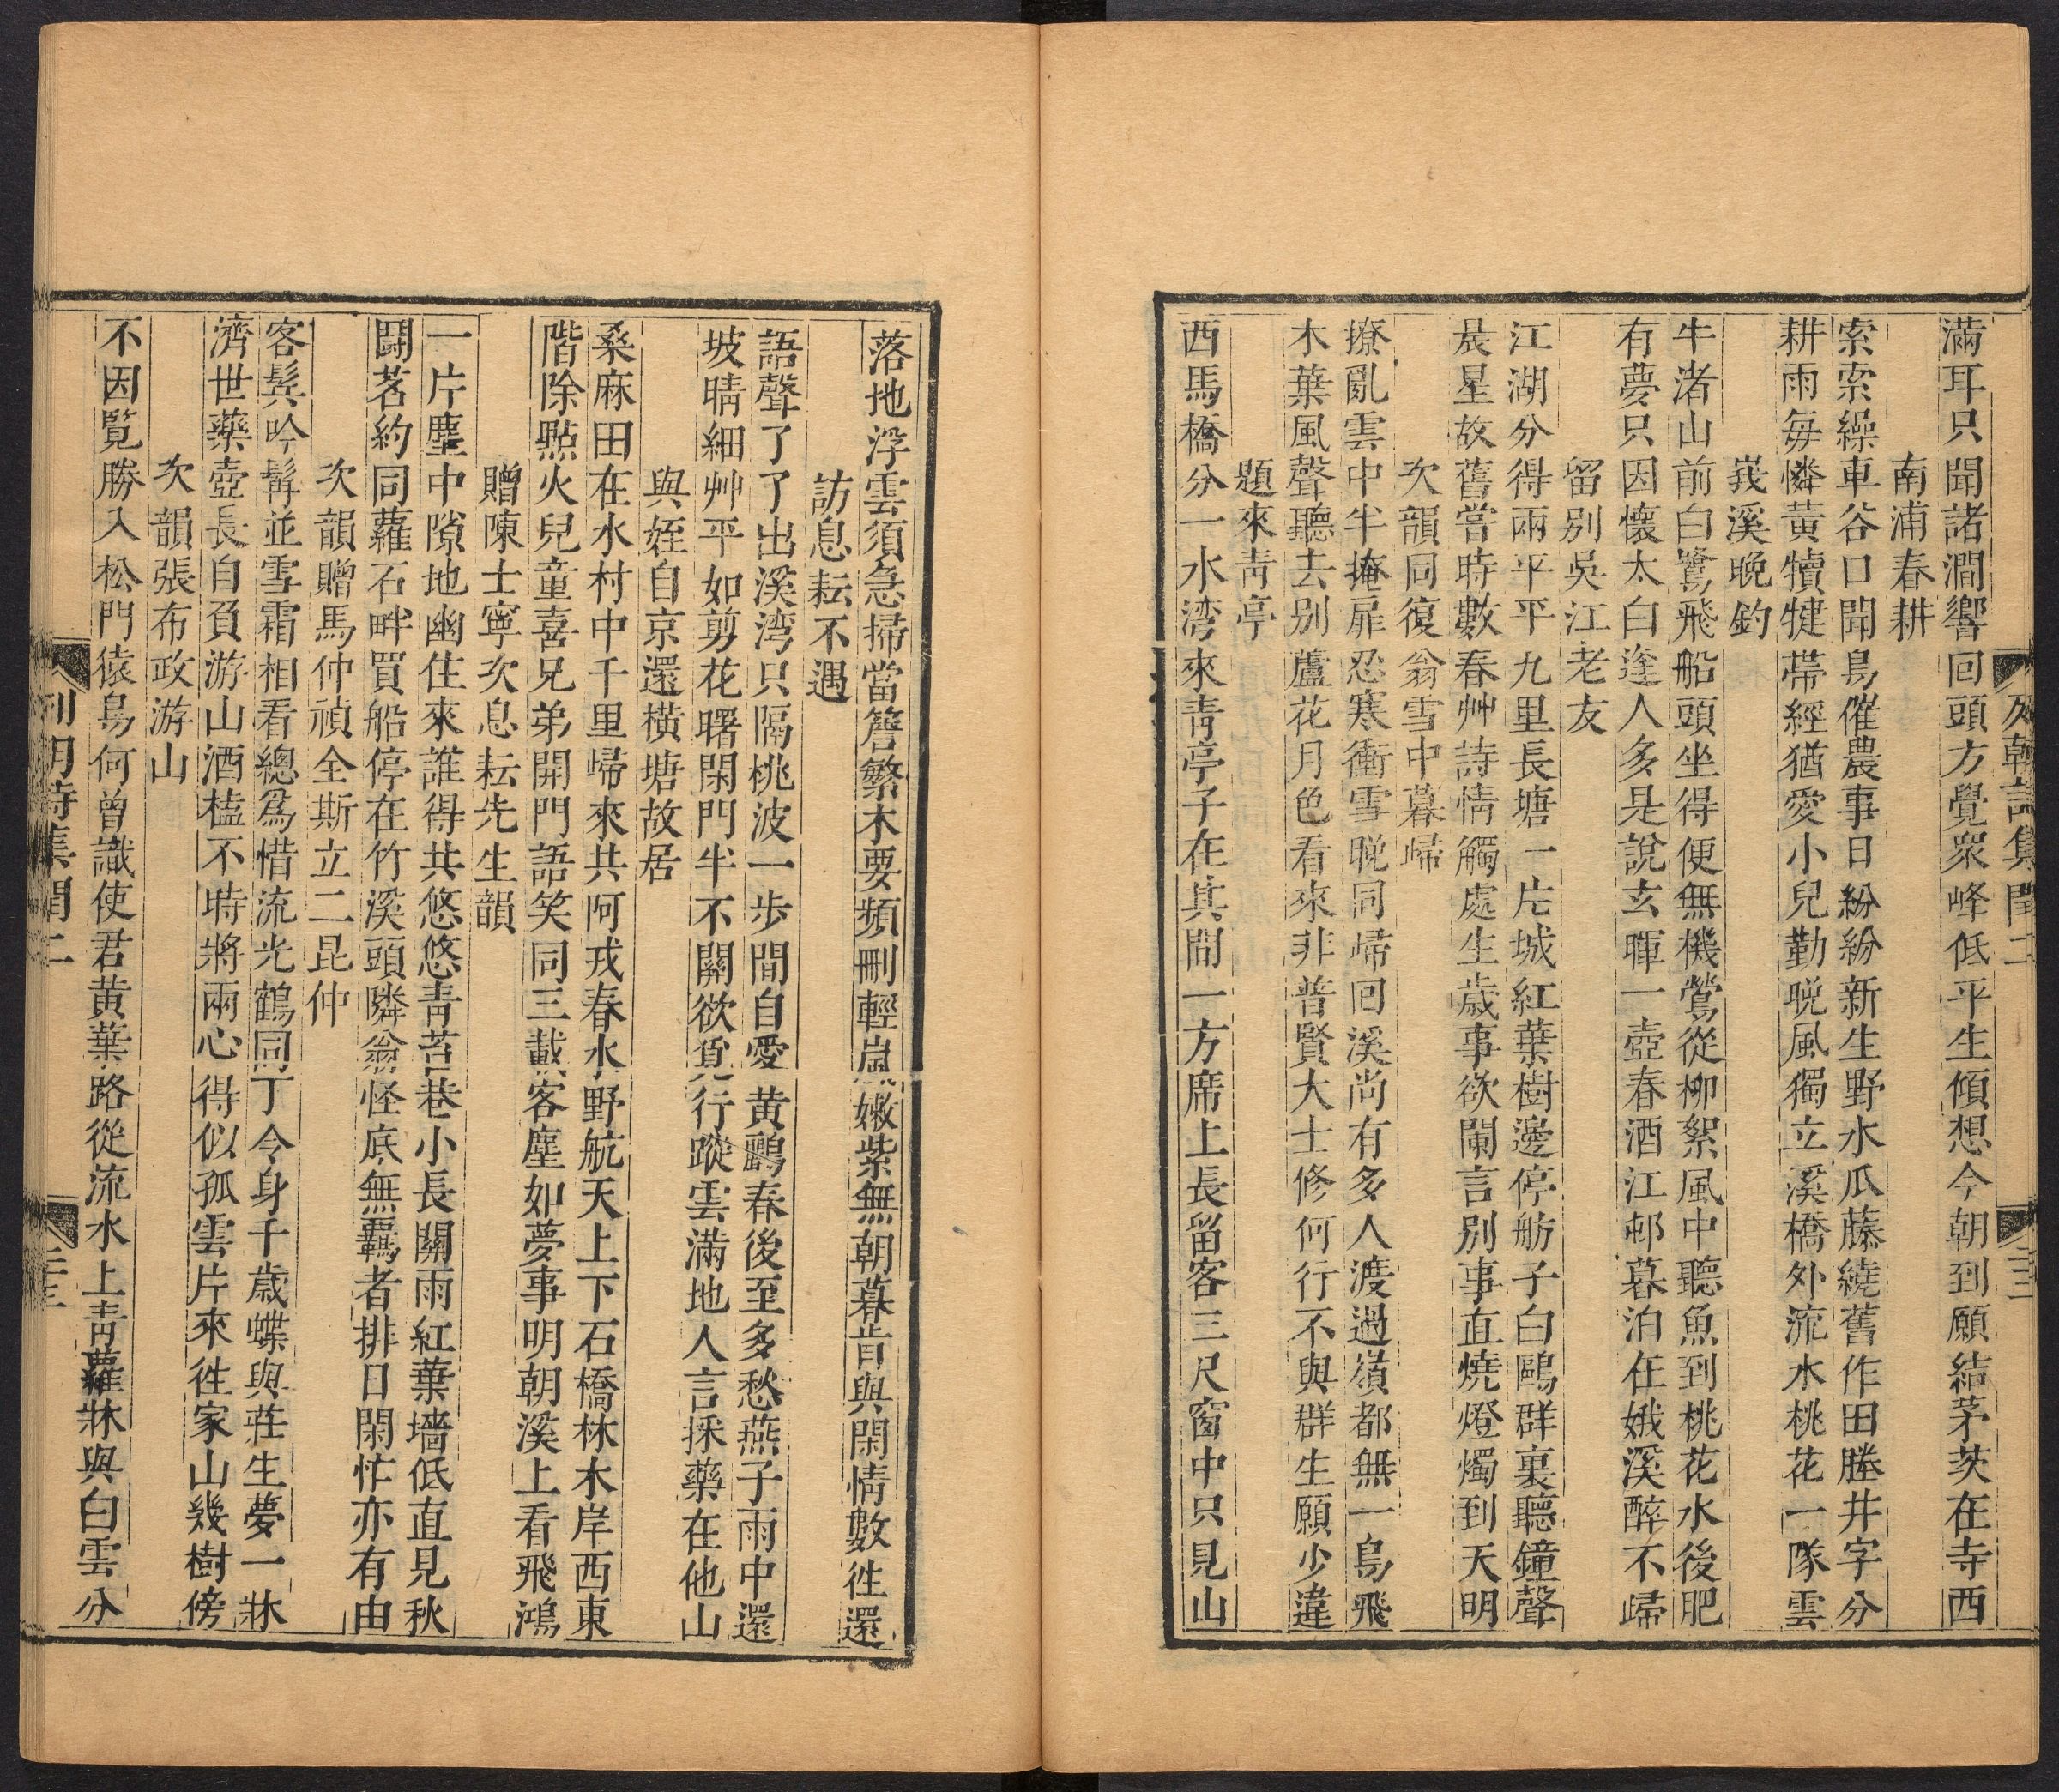 滿耳只聞諸澗響回頭方覺衆峰低平生傾想今朝到願結茅茨在寺西
南浦春耕
索索繰車谷口聞鳥催農事日紛紛新生野水瓜藤繞舊作田塍井字分
耕雨每憐黃犢健帶經猶愛小兒勤晚風獨立溪橋外流水桃花一隊雲
峩溪晚釣
牛渚山前白鷺飛船頭坐得便無機鶯從柳絮風中聽魚到桃花水後肥
有夢只因懷太白逢人多是說玄暉一壺春酒江邨暮泊在娥溪醉不歸
留别吳江老友
江湖分得兩平平九里長塘一片城紅葉樹邊停舫子白鷗群裏聽鐘聲
晨星故舊當時數春艸詩情觸處生歲事欲闌言别事直燒燈燭到天明
次韻同復翁雪中暮歸
撩亂雲中半掩扉忍寒衝雪晚同歸回溪尚有多人渡過嶺都無一鳥飛
木葉風聲聽去别蘆花月色看來非普賢大士修何行不與群生願少違
題來青亭
西馬橋分一水灣來青亭子在其間一方席上長留客三尺窗中只見山
落地浮雲須急掃當簷繁木要頻刪輕嵐嫩紫無朝暮肯與閑情數往還
訪息耘不遇
語聲了了出溪湾只隔桃波一步間自愛黄鸝春後至多愁燕子雨中還
坡晴細艸平如剪花曙閑門半不關欲覓行蹤雲滿地人言採藥在他山
與姪自京還橫塘故居
桑麻田在水村中千里歸來共阿戎春水野航天上下石橋林木岸西東
階除㸃火兒童喜兄弟開門語笑同三載客塵如夢事明朝溪上看飛鴻
贈陳士寧次息耘先生韻
一片塵中隙地幽住來誰得共悠悠青苔巷小長關雨紅葉墻低直見秋
鬭茗約同蘿石畔買船停在竹溪頭隣翁怪底無羈者排日閑忙亦有由
次韻贈馬仲禎全斯立二昆仲
客鬂吟髯並雪霜相看總爲惜流光鶴同丁令身千歲蝶與莊生夢一牀
濟世藥壺長自負游山酒榼不時將兩心得似孤雲片來往家山幾樹傍
次韻張布政游山
不因覧勝入松門猿鳥何曾識使君黄葉路從流水上青蘿牀與白雲分
列朝詩集閏二